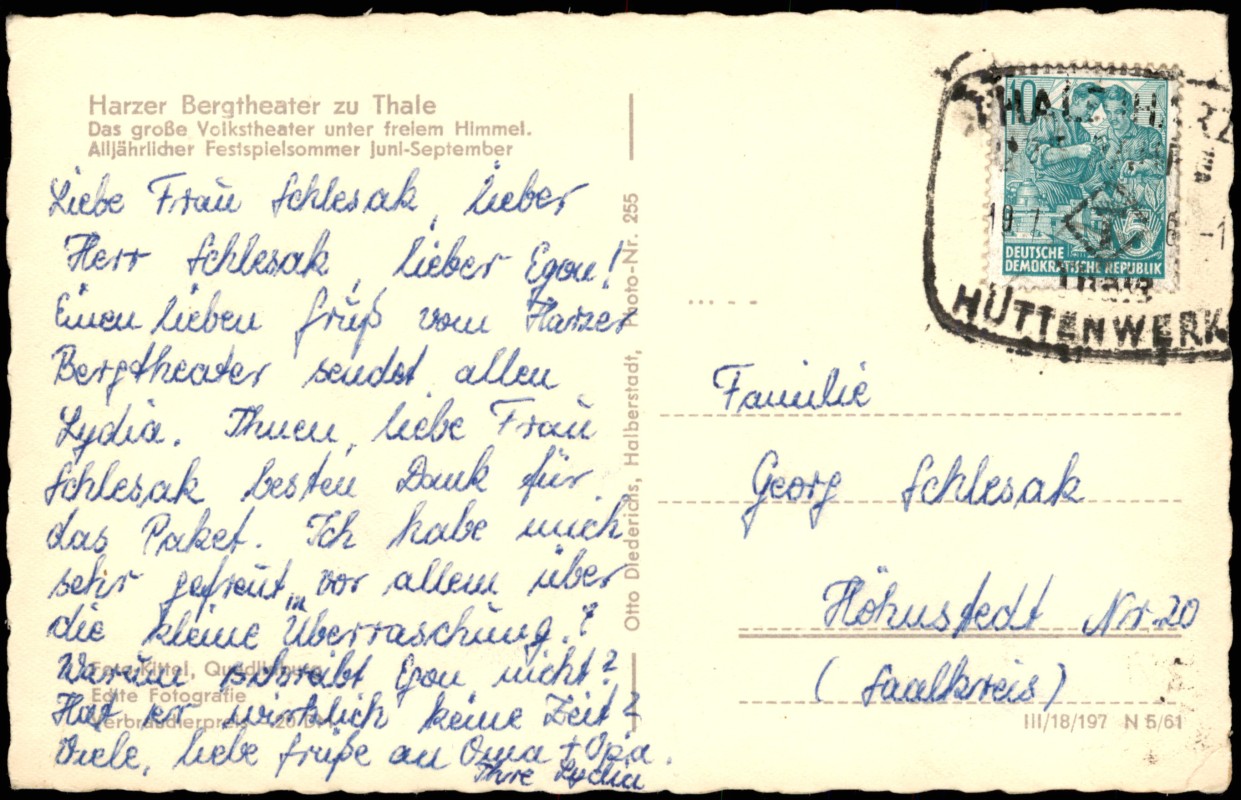 Harzer Bergtheater zu Thale
Das große Volkstheater unter freiem Himmel.
Alljährlicher Festspielsommer Juni-September
Liebe Frau Schlesak, lieber
Herr Schlesak, lieber Egon!
Einen lieben Gruß vom Harzer
Bergtheater sendet allen
Lydia. Ihnen, liebe Frau
Schlesak besten Dank für
das Paket. Ich habe mich
sehr gefreut, vor allem über
die kleine "Überraschung."
Warum schreibt Egon nicht?
Hat er wirklich keine Zeit?
Viele, liebe Grüße an Oma + Opa.
Ihre Lydia
Foto-Kittel, Quedlinburg
Echte Fotografie
Verbraucherpreis
Otto Diederichs, Halberstadt, Photo-Nr. 255
10
5
DEUTSCHE
DEMOKRATISCHE REPUBLIK
THALE HARZ
Thale
HÜTTENWERK
Familie
Georg Schlesak
Höhnstedt Nr. 20
(Saalkreis)
III/18/197 N 5/61